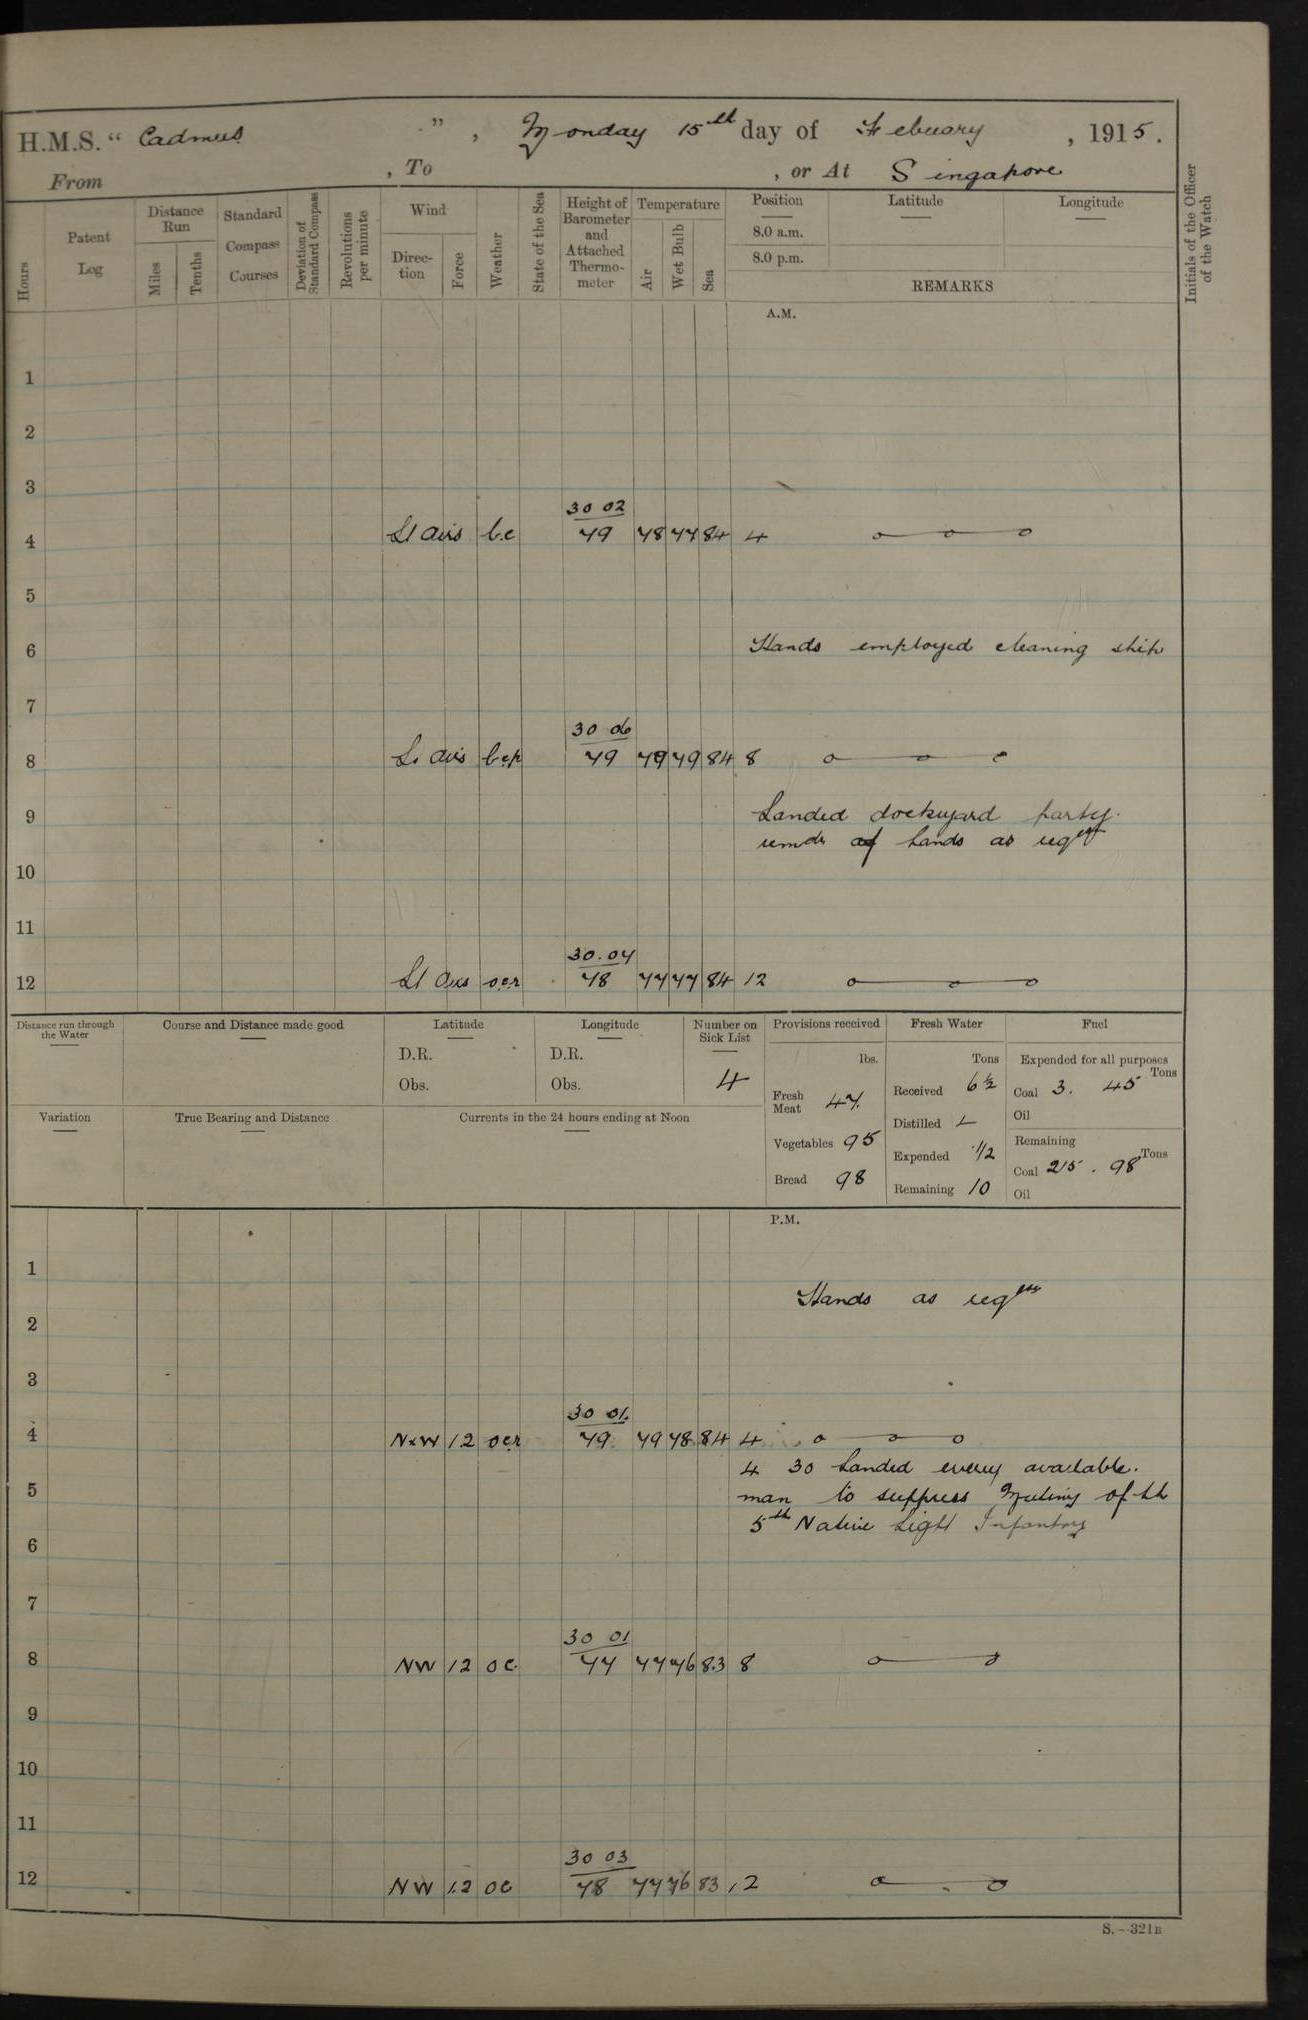 H.M.S. " Cadmus ", Monday 15th day of Febuary, 1915.
From , To , or At Singapore
Hours
Patent Log
Distance Run
Miles
Tenths
Standard Compass Courses
Deviation of Standard Compass
Revolutions per minute
Wind
Direction
Force
Weather
State of the Sea
Height of Barometer and Attached Thermometer
Temperature
Air
Wet Bulb
Sea
Position
8.0 a.m.
8.0 p.m.
Latitude
Longitude
REMARKS
Initials of the Officer of the Watch
A.M.
1
2
3
30 02
4 Lt airs b.c 79 78 77 84 4
5
6 Hands employed cleaning ship
7
30 06
8 Lt airs bcp 79 79 79 84 8
9 Landed dockyard party.
remdr of hands as reqd
10
11
30.04
12 Lt airs ocr 78 77 77 84 12
Distance run through the Water
Course and Distance made good
Latitude
D.R.
Obs.
Longitude
D.R.
Obs.
Number on Sick List
4
Provisions received
lbs.
Fresh Meat 47
Vegetables 95
Bread 98
Fresh Water
Tons
Received 6½
Distilled
Expended ½
Remaining 10
Fuel
Expended for all purposes
Tons
Coal 3. 45
Oil
Remaining
Tons
Coal 215. 98
Oil
Variation
True Bearing and Distance
Currents in the 24 hours ending at Noon
P.M.
1
Hands as reqd
2
3
30 01
4 NxW 1.2 ocr 79 79 78 84 4
4 30 Landed every available.
5 man to suppress Mutiny of th
5th Native Light Infantry
6
7
30 01
8 NW 1.2 oc 77 77 76 83 8
9
10
11
30 03
12 NW 1.2 oc 78 77 76 83 12
S.-321B